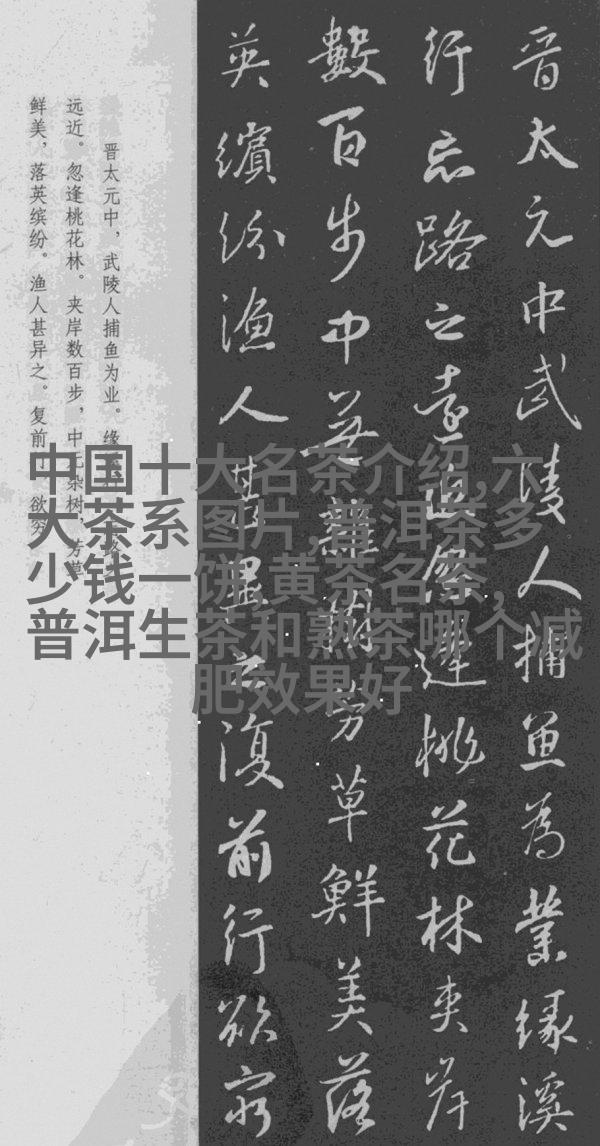 晋太元中武陵人捕魚為業緣溪
行忘路之遠近忽逢桃花林夾岸
數百步中無雜樹芳草鮮美落
英繽紛漁人甚異之復前行欲窮
晋太元中，武陵人捕鱼为业。缘
远近。忽逢桃花林。夹岸数百步，中无杂树，芳草
鲜美，落英缤纷。渔人甚异之。复前行，欲穷
中国十大名茶介绍,六
大茶系图片,普洱茶多
少钱一饼,黄茶名茶,
普洱生茶和熟茶哪个减
肥效果好